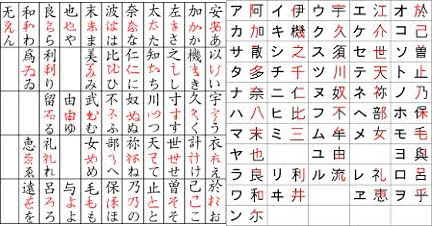 安あ 以い 宇う 衣え 於お
加か 機き 久く 計け 己こ
左さ 之し 寸す 世せ 曽そ
太た 知ち 川つ 天て 止と
奈な 仁に 奴ぬ 祢ね 乃の
波は 比ひ 不ふ 部へ 保ほ
末ま 美み 武む 女め 毛も
也や 由ゆ 与よ
良ら 利り 留る 礼れ 呂ろ
和わ 為ゐ 恵ゑ 遠を
无ん
ア 阿 イ 伊 ウ 宇 エ 江 オ 於
カ 加 キ 機 ク 久 ケ 介 コ 己
サ 散 シ 之 ス 須 セ 世 ソ 曽
タ 多 チ 千 ツ 川 テ 天 ト 止
ナ 奈 ニ 仁 ヌ 奴 ネ 祢 ノ 乃
ハ 八 ヒ 比 フ 不 ヘ 部 ホ 保
マ 末 ミ 三 ム 牟 メ 女 モ 毛
ヤ 也 ユ 由 ヨ 與
ラ 良 リ 利 ル 流 レ 礼 ロ 呂
ワ 和 ヰ 井 ヱ 恵 ヲ 乎
ン 尓